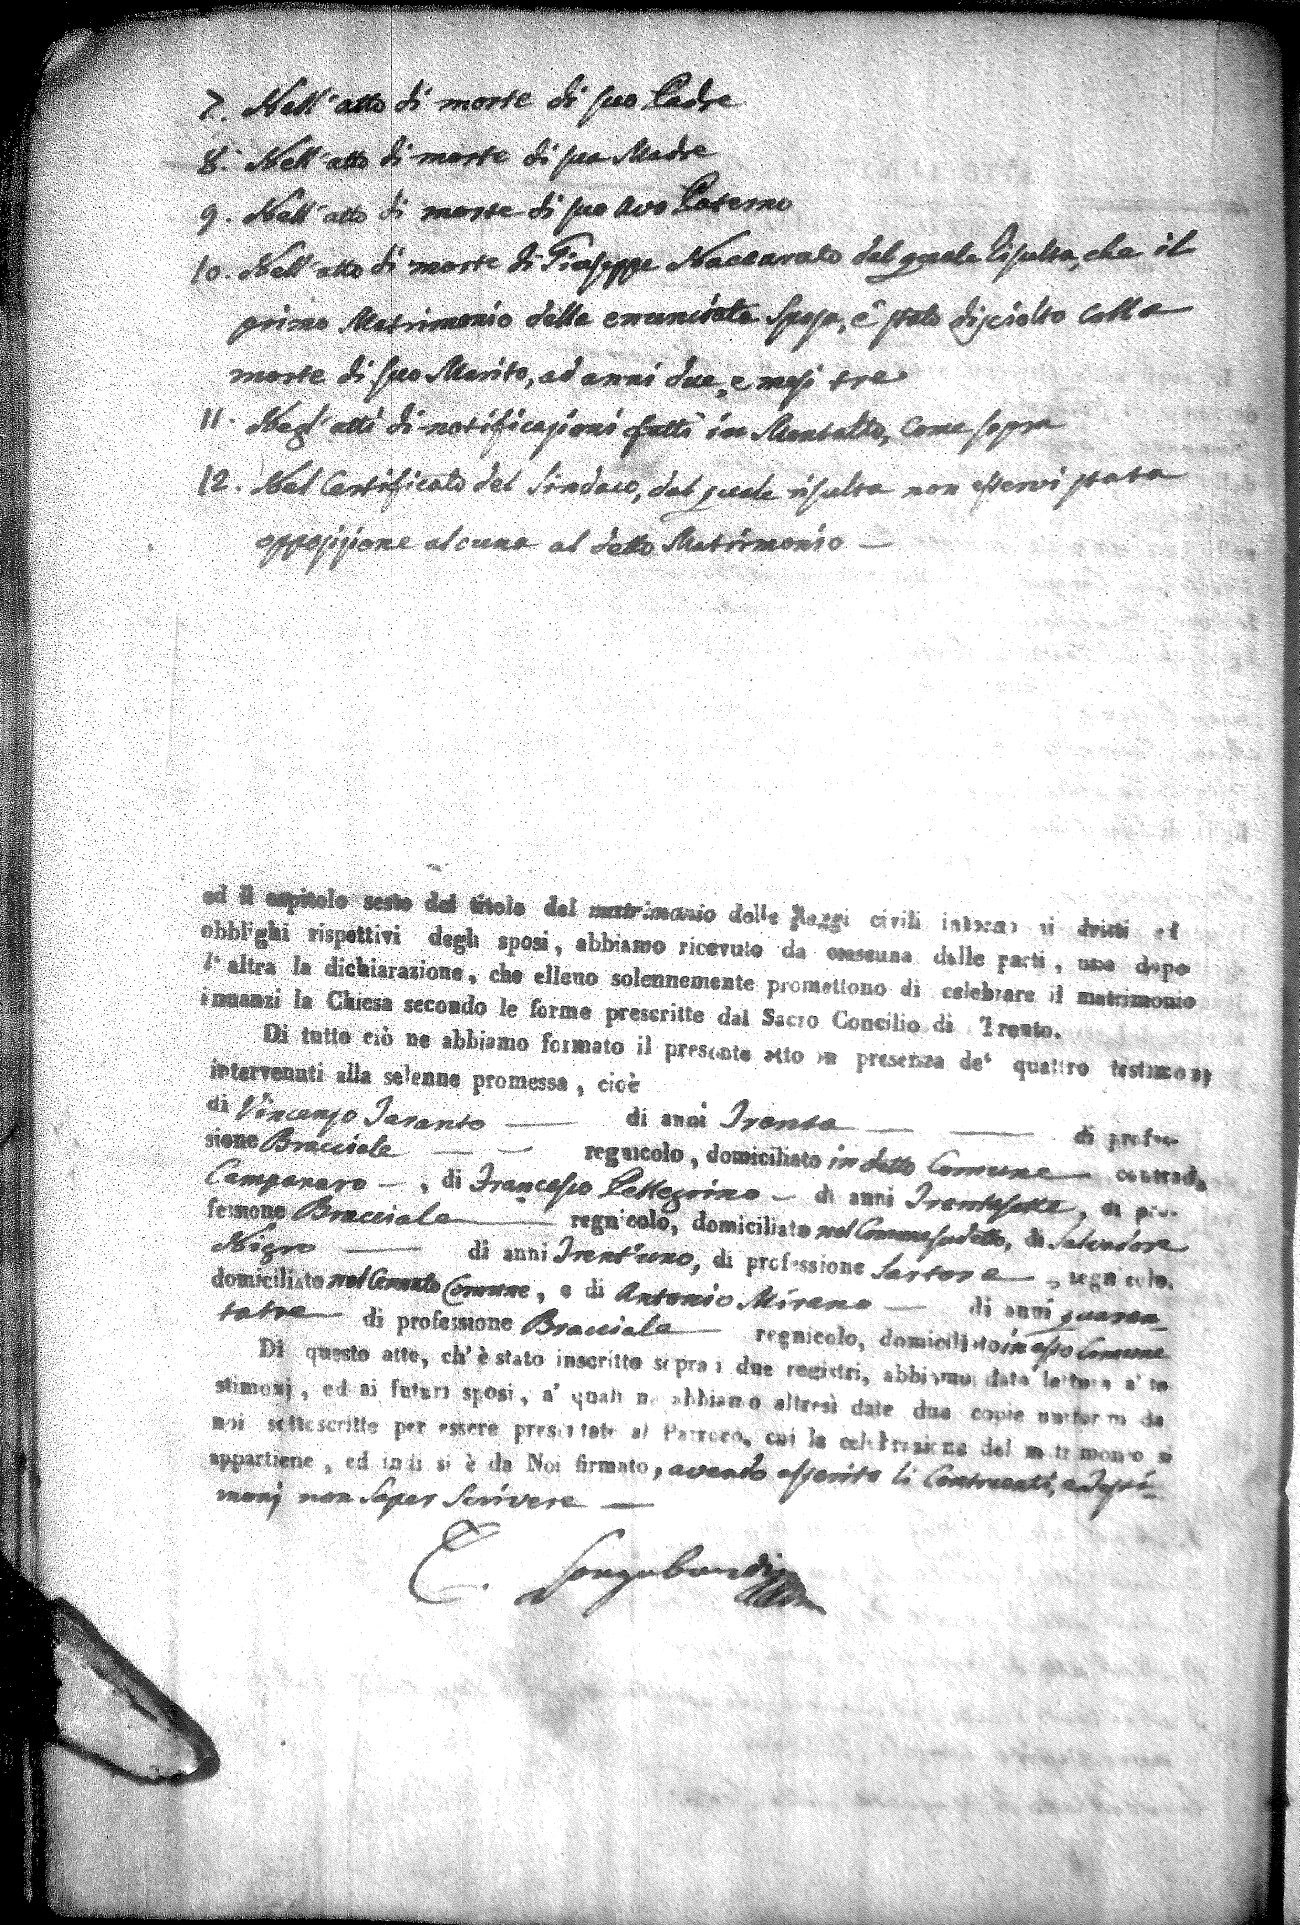 7. Nell'atto di morte di suo Padre
8. Nell'atto di morte di sua Madre
9. Nell'atto di morte di suo avo Paterno
10. Nell'atto di morte di Giuseppe Naccarato dal quale risulta, che il
primo Matrimonio della enunciata Sposa, è stato disciolto colla
morte di suo Marito, ad anni due, e mesi tre
11. Negl'atti di notificazioni fatti in Montalto, come sopra
12. Nel Certificato del Sindaco, dal quale risulta non esservi stata
opposizione alcuna al detto Matrimonio —
ed il capitolo sesto del titolo del matrimonio delle Leggi civili intorno ai dritti ed
obblighi rispettivi degli sposi, abbiamo ricevuto da ciascuna delle parti, una dopo
l'altra la dichiarazione, che elleno solennemente promettono di celebrare il matrimonio
innanzi la Chiesa secondo le forme prescritte dal Sacro Concilio di Trento.
Di tutto ciò ne abbiamo formato il presente atto in presenza de' quattro testimonj
intervenuti alla solenne promessa, cioè
di Vincenzo Taranto — di anni Trenta — — di profes-
sione Bracciale — — regnicolo, domiciliato in detto Comune — contrada
Campanaro —, di Francesco Pellegrino — di anni Trentasette, di pro-
fessione Bracciale — regnicolo, domiciliato nel Comune sudetto, di Salvadore
Nigro — di anni Trent'uno, di professione Sartore —, regnicolo,
domiciliato nel Cennato Comune, e di Antonio Mirano — di anni quaran-
tatre — di professione Bracciale — regnicolo, domiciliato in esso Comune
Di questo atto, ch'è stato inscritto sopra i due registri, abbiamo data lettura a' te-
stimonj, ed ai futuri sposi, a' quali ne abbiamo altresì date due copie uniformi da
noi sottoscritte per essere presentate al Parroco, cui la celebrazione del matrimonio si
appartiene, ed indi si è da Noi firmato, avendo asserito li Contraenti, e Testi-
monj non saper scrivere —